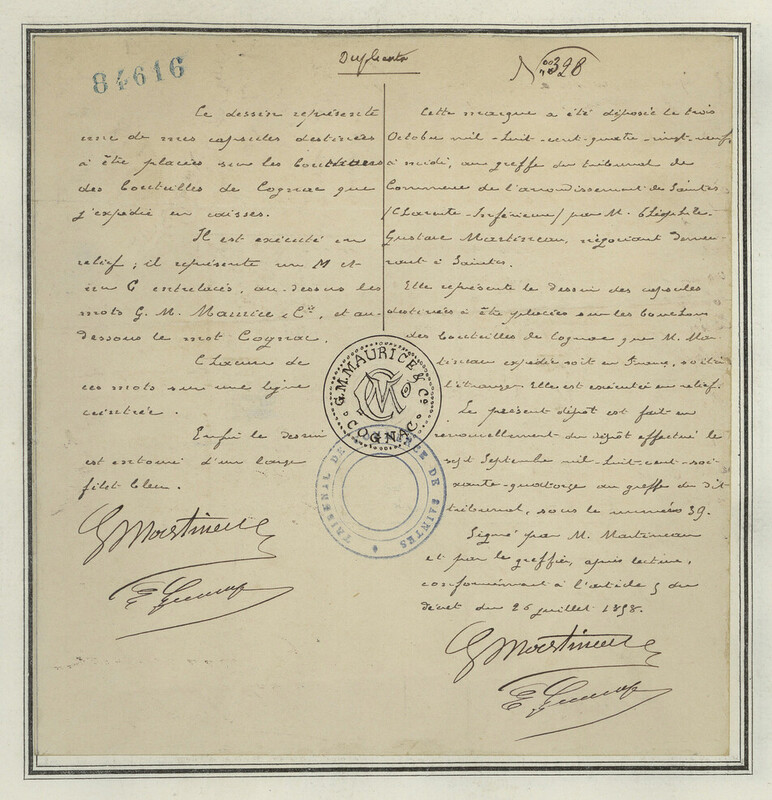 84616
Duplicata
N° 328
Ce dessin représente
une de mes capsules destinées
à être placées sur les bouchons
des bouteilles de Cognac que
j'expédie en caisses.
Il est exécuté en
relief; il représente un M et
un C entrelacés, au-dessus les
mots G. M. Maurice & Cie, et au-
dessous le mot Cognac.
Chacun de
ces mots sur une ligne
cintrée.
Enfin le dessin
est entouré d'un large
filet bleu.
G Martineau
Cette marque a été déposée le trois
Octobre mil-huit-cent-quatre-vingt-neuf
à midi, au greffe du tribunal de
Commerce de l'arrondissement de Saintes
/Charente-Inférieure/ par M. Théophile
Gustave Martineau, négociant demeu-
rant à Saintes.
Elle représente le dessin des capsules
destinées à être placées sur les bouchons
des bouteilles de Cognac que M. Mar-
tineau expédie soit en France, soit à
l'étranger. Elle est exécutée en relief.
Le présent dépôt est fait en
renouvellement du dépôt effectué le
sept Septembre mil-huit-cent-soi-
xante-quatorze au greffe du dit
tribunal, sous le numéro 39.
Signé par M. Martineau
et par le greffier, après lecture,
conformément à l'article 5 du
décret du 26 juillet 1858.
G Martineau
G.M.MAURICE & Co.
MC
COGNAC
TRIBUNAL DE COMMERCE DE SAINTES